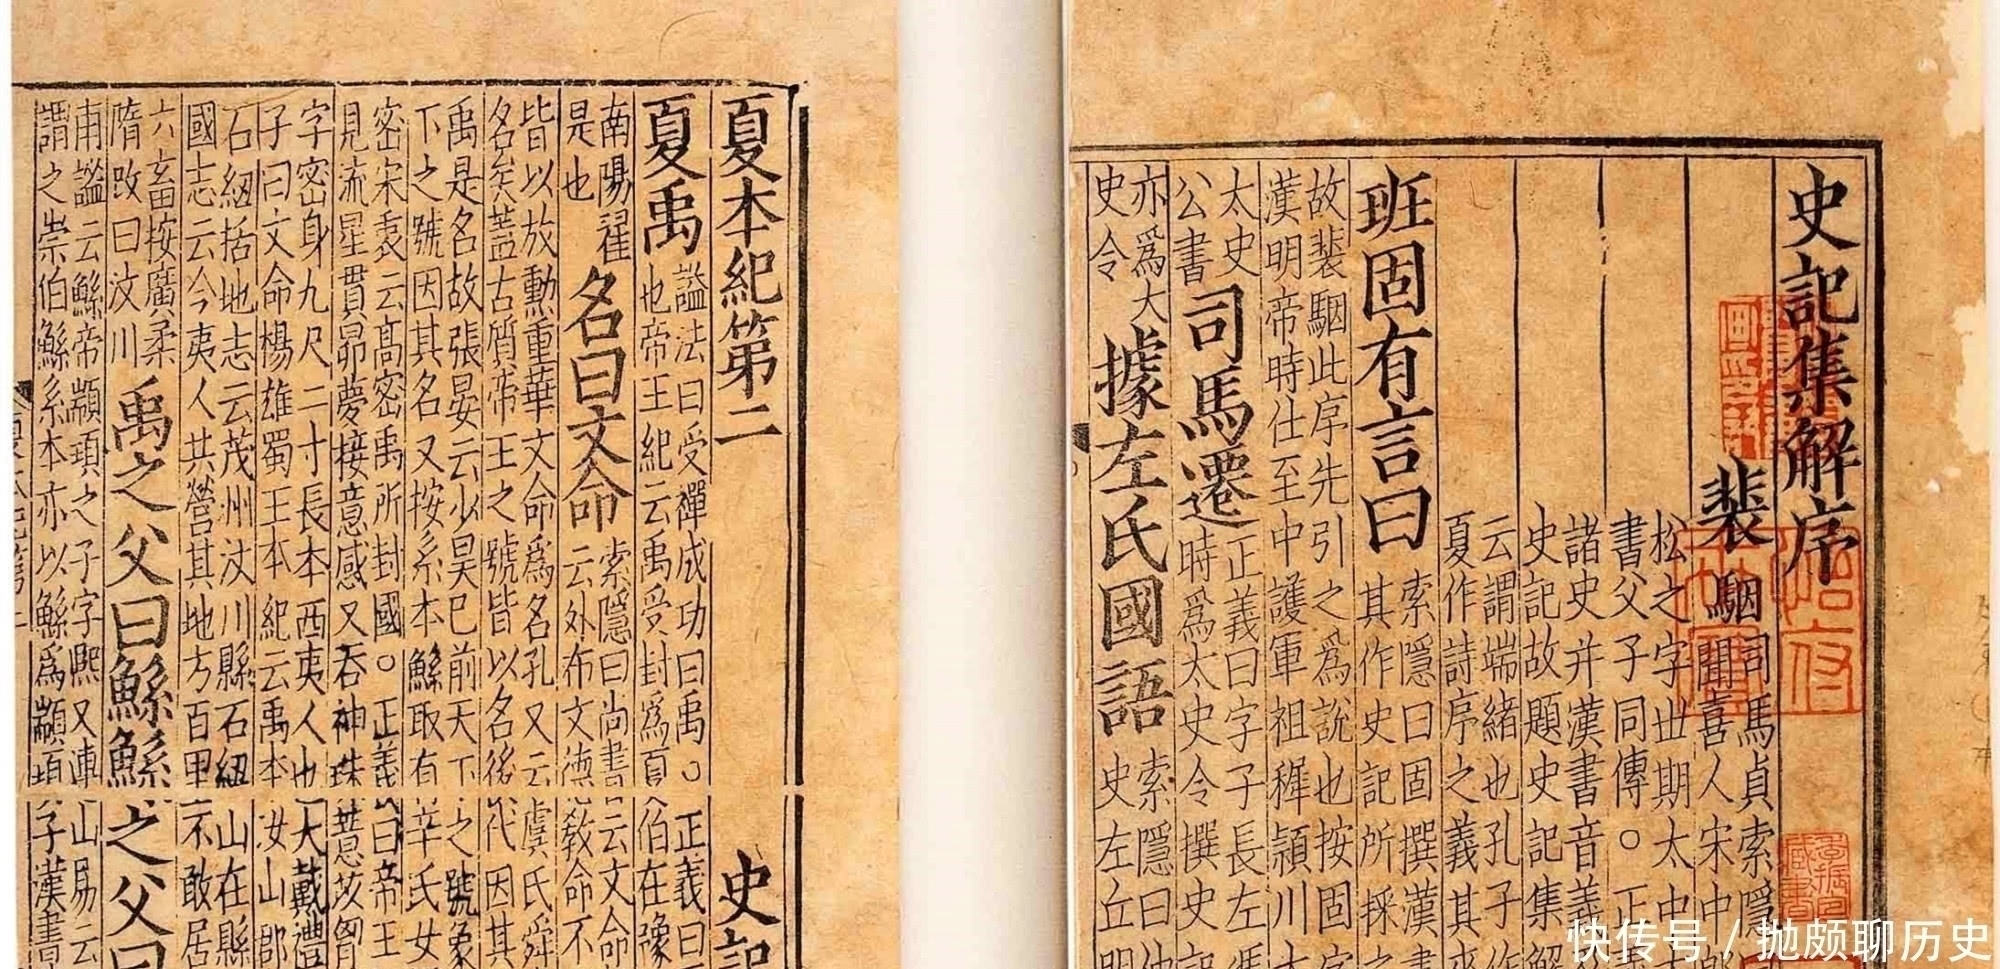 史記集解序
裴駰 司馬貞索隱
聞喜人宋中郎
松之字世期太中
書父子同傳。正
諸史并漢書音義
史記故題史記集解
云謂端緒也孔子作
夏作詩序序之義其來
班固有言曰 索隱曰固撰漢書
其作史記所採之
故裴駰此序先引之爲說也按固字
漢明帝時仕至中護軍祖穉潁川太
太史公書 司馬遷 正義曰字子長左馮
時爲太史令撰史記
亦爲大史令 據左氏國語 索隱曰仲
史左丘明
夏本紀第二 史記
夏禹 謚法曰受禪成功曰禹。正義曰
也帝王紀云禹受封爲夏伯在豫
南陽翟是也 名曰文命 索隱曰尚書云文命
云外布文德教命不
皆以放勳重華文命爲名孔又云虞氏舜
名矣蓋古質帝王之號皆以名後代因其
禹是名故張晏云少昊已前天下之號象
下之號因其名又按系本鯀取有辛氏女
密宋衷云高密禹所封國。正義曰帝王
見流星貫昴夢接意感又吞神珠薏苡胷
字密身九尺二寸長本西夷人也大戴禮
子曰文命楊雄蜀王本紀云禹本汶山郡
石紐括地志云茂州汶川縣石紐山在縣
國志云今夷人共營其地方百里不敢居
六畜按廣柔隋改曰汶川 禹之父曰鯀鯀之父曰
甫謐云鯀帝顓頊之子字熙又連山易云
謂之崇伯鯀系本亦以鯀爲顓頊子漢書
快传号 / 抛颇聊历史